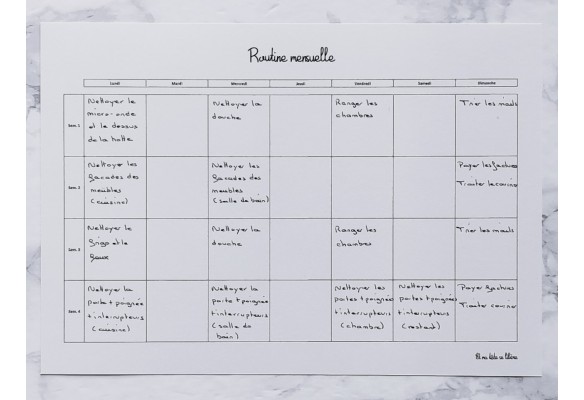 Routine mensuelle
Lundi Mardi Mercredi Jeudi Vendredi Samedi Dimanche
Sem. 1
Nettoyer le
micro-onde
et le dessus
de la hotte
Nettoyer la
douche
Ranger les
chambres
Trier les mails
Sem. 2
Nettoyer les
façades des
meubles
(cuisine)
Nettoyer les
façades des
meubles
(salle de bain)
Payer les factures
Traiter le courrier
Sem. 3
Nettoyer le
frigo et le
four
Nettoyer la
douche
Ranger les
chambres
Trier les mails
Sem. 4
Nettoyer la
porte + poignée
+ interrupteurs
(cuisine)
Nettoyer la
porte + poignée
+ interrupteurs
(salle de
bain)
Nettoyer les
portes + poignées
+ interrupteurs
(chambre)
Nettoyer les
portes + poignées
+ interrupteurs
(restant)
Payer factures
Traiter courrier